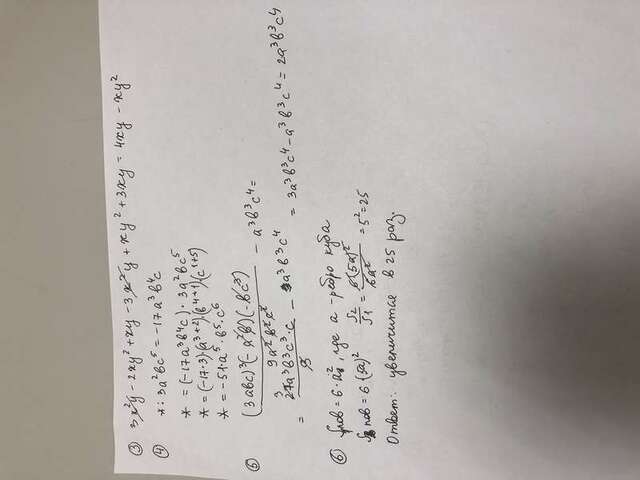 ③ 3x²y - 2xy² + xy - 3x²y + xy² + 3xy = 4xy - xy²
④ * : 3a²bc⁵ = -17a³b⁴c
* = (-17a³b⁴c) · 3a²bc⁵
* = (-17·3)·(a³⁺²)·(b⁴⁺¹)·(c¹⁺⁵)
* = -51·a⁵·b⁵·c⁶
⑤ (3abc)³(-a²b)(-bc³) / 9a²b²c² - a³b³c⁴ =
= 27a³b³c³·c / 9 - a³b³c⁴ = 3a³b³c⁴ - a³b³c⁴ = 2a³b³c⁴
⑥ Sпов = 6·a², где a - ребро куба
S пов = 6(5a)² S2/S1 = 6(5a)²/6a² = 5² = 25
Ответ: увеличится в 25 раз.